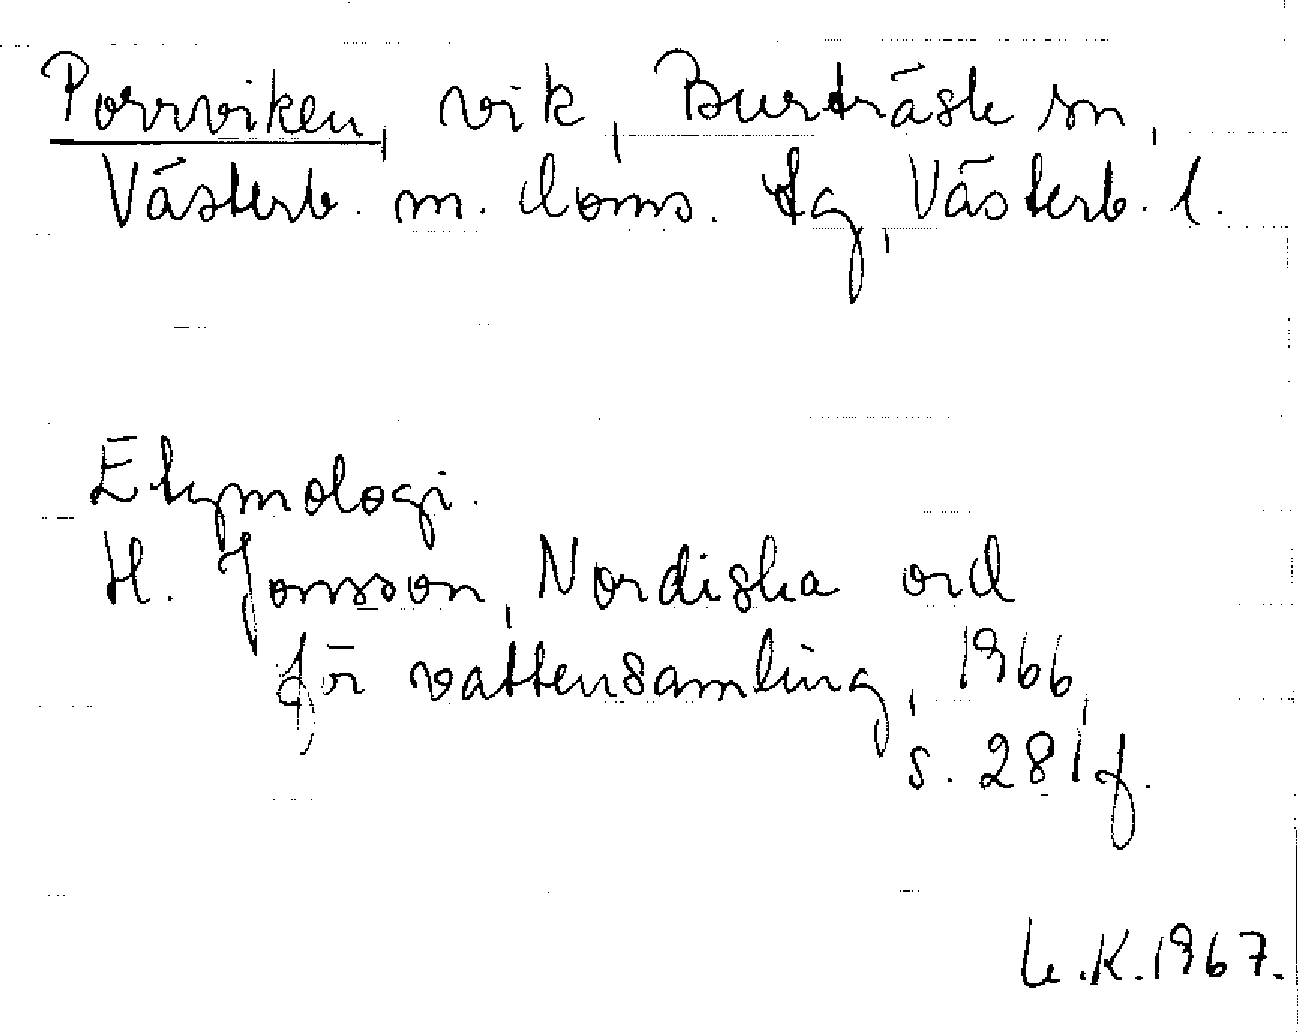 Porrviken, vik, Burträsk sn,
Västerb. m. doms. tg, Västerb. l.
Etymologi.
H. Jonsson, Nordiska ord
för vattensamling, 1966,
s. 281 f.
L.K. 1967.